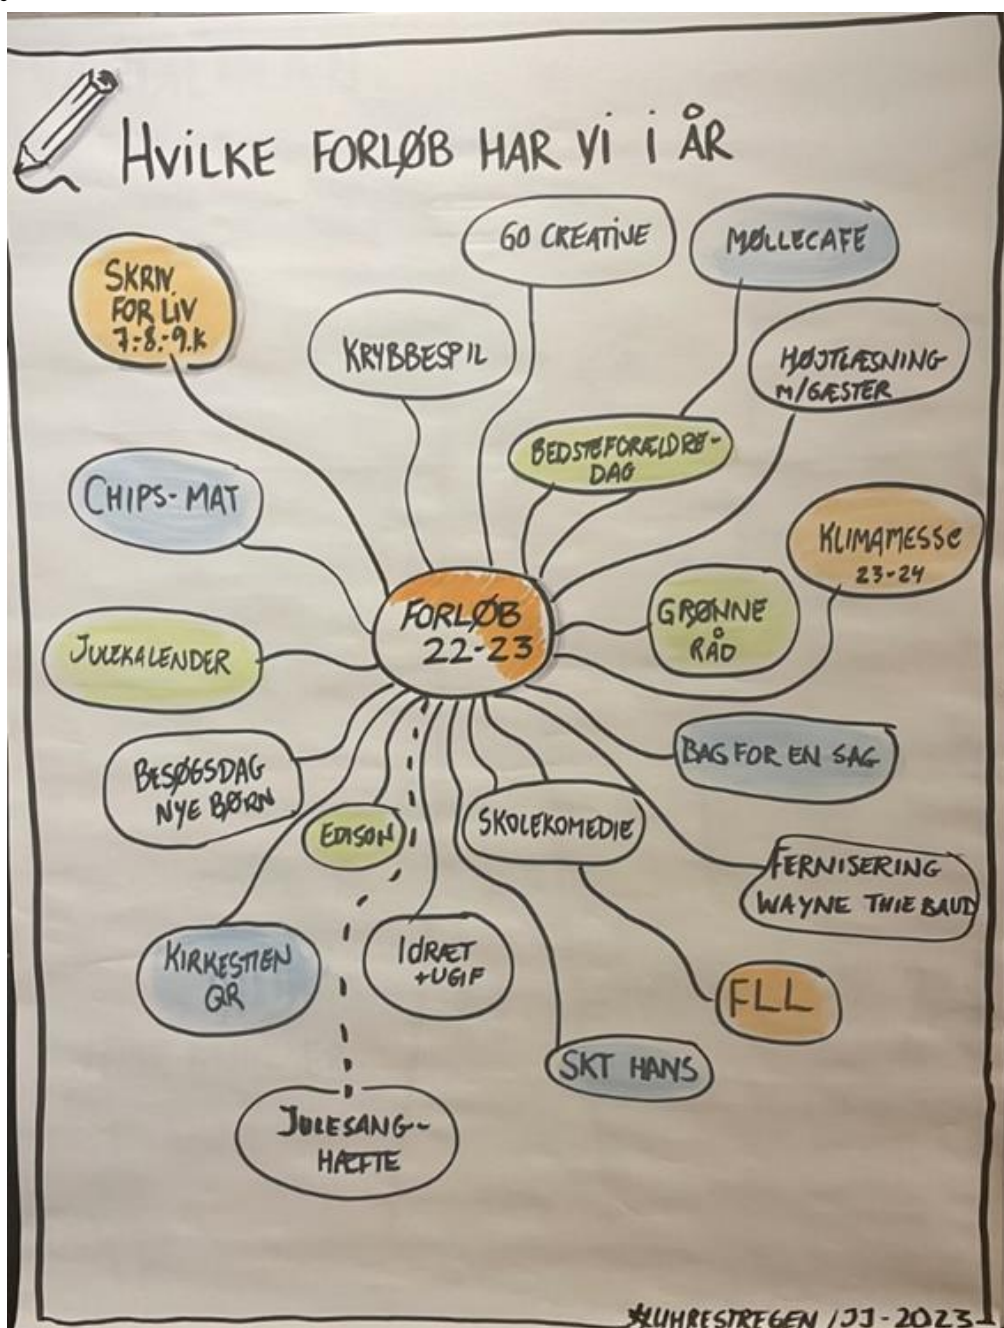 HVILKE FORLØB HAR VI I ÅR
GO CREATIVE
MØLLECAFE
SKRIV
FOR LIV
7.-8.-9.K
KRYBBESPIL
HØJTLÆSNING
M/GÆSTER
BEDSTEFORÆLDRE-
DAG
CHIPS-MAT
KLIMAMESSE
23-24
FORLØB
22-23
GRØNNE
RÅD
JULEKALENDER
BAG FOR EN SAG
BESØGSDAG
NYE BØRN
EDISON
SKOLEKOMEDIE
FERNISERING
WAYNE THIEBAUD
KIRKESTIEN
QR
IDRÆT
+UGIF
FLL
SKT HANS
JULESANG-
HÆFTE
#UHRESTREGEN/JJ-2023